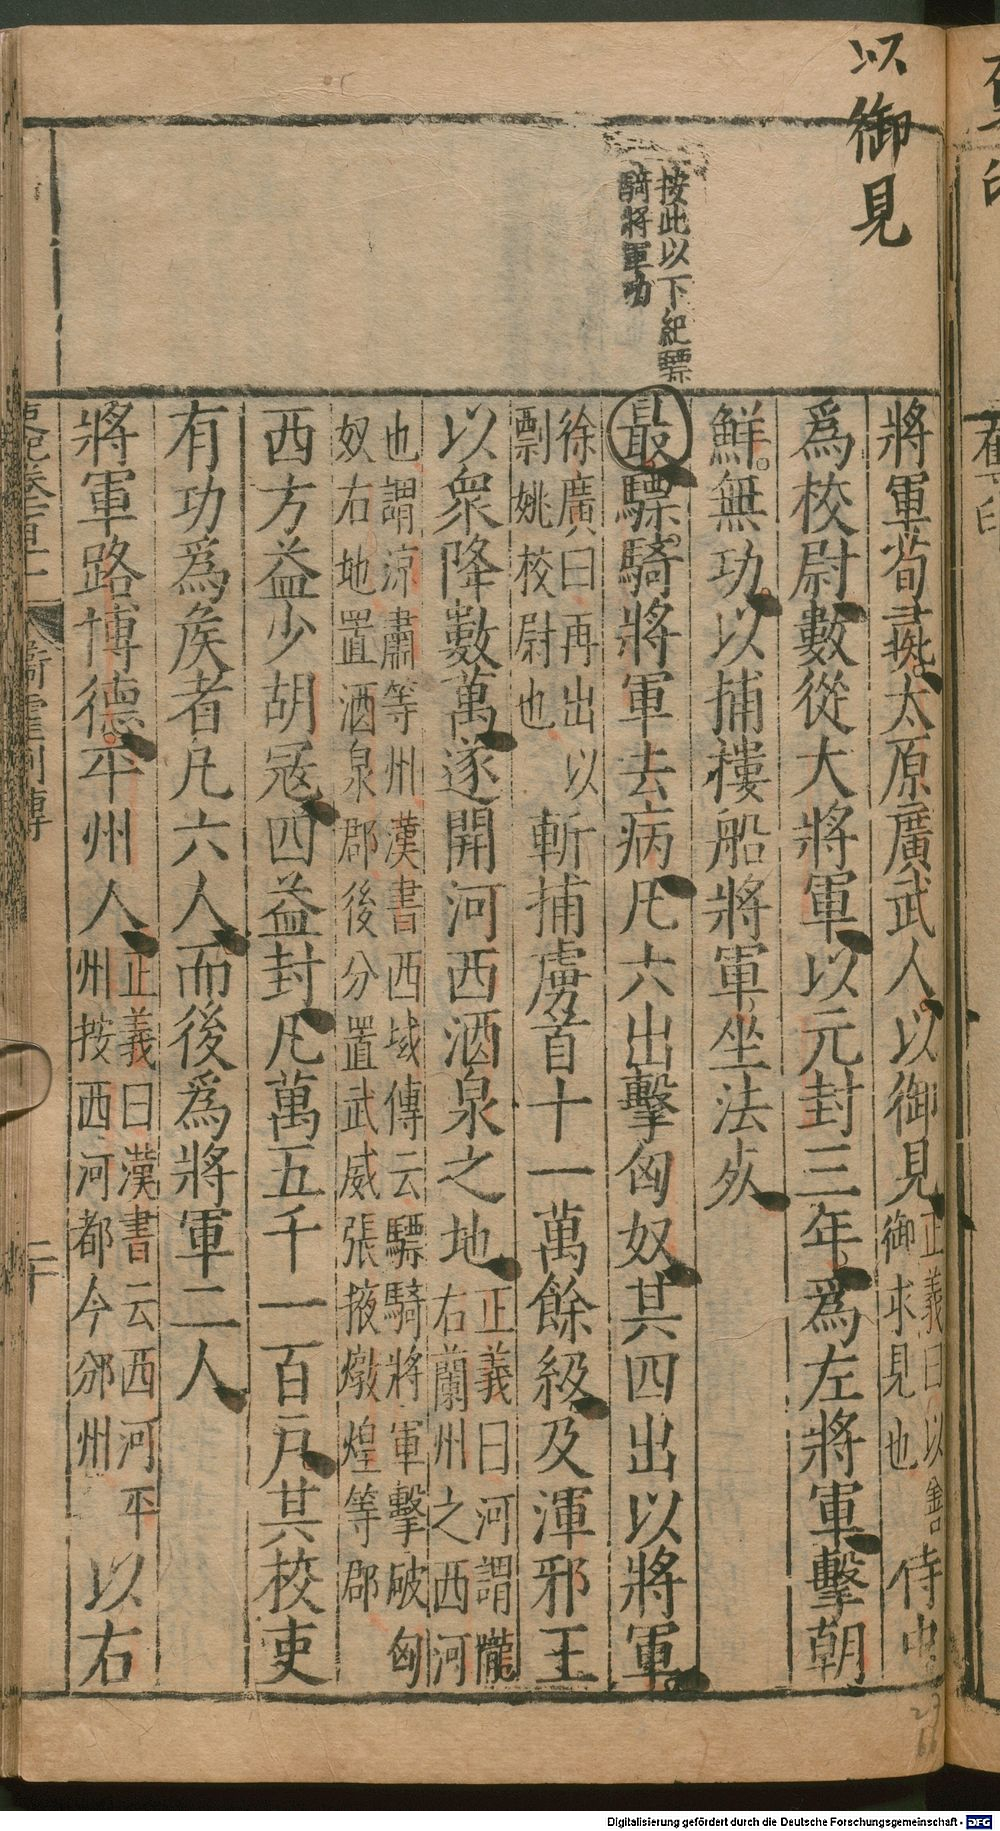 以御見
按此以下紀驃
騎將軍功
將軍荀彘太原廣武人以御見
正義曰以善
御求見也
侍中
爲校尉數從大將軍以元封三年爲左將軍擊朝
鮮無功以捕樓船將軍坐法死
最驃騎將軍去病凡六出擊匈奴其四出以將軍
徐廣曰再出以
剽姚校尉也
斬捕虜首十一萬餘級及渾邪王
以衆降數萬遂開河西酒泉之地
正義曰河謂隴
右蘭州之西河
也謂涼肅等州漢書西域傳云驃騎將軍擊破匈
奴右地置酒泉郡後分置武威張掖燉煌等郡
西方益少胡冦四益封凡萬五千一百戶其校吏
有功爲矦者凡六人而後爲將軍二人
將軍路博德平州人
正義曰漢書云西河平
州按西河都今邠州
以右
史記卷
衞霍列傳
二十
Digitalisierung gefördert durch die Deutsche Forschungsgemeinschaft - DFG